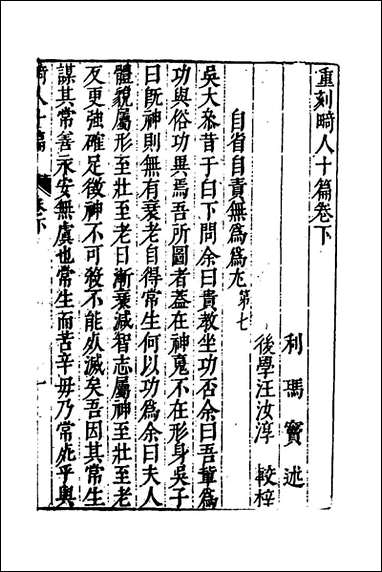 重刻畸人十篇卷下
利瑪竇述
後學汪汝淳較梓
自省自責無為為尤第七
吳大參昔于白下問余曰貴教坐功否余曰吾輩為
功與俗功異焉吾所圖者蓋在神䰟不在形身吳子
曰旣神則無有衰老自得常生何以功為余曰夫人
體貌屬形至壯至老日漸衰減智志屬神至壯至老
反更強確足徵神不可殺不能㪰滅矣吾因其常生
謀其常善永安無虞也常生而苦辛毋乃常死乎與
畸人十篇 卷下 一